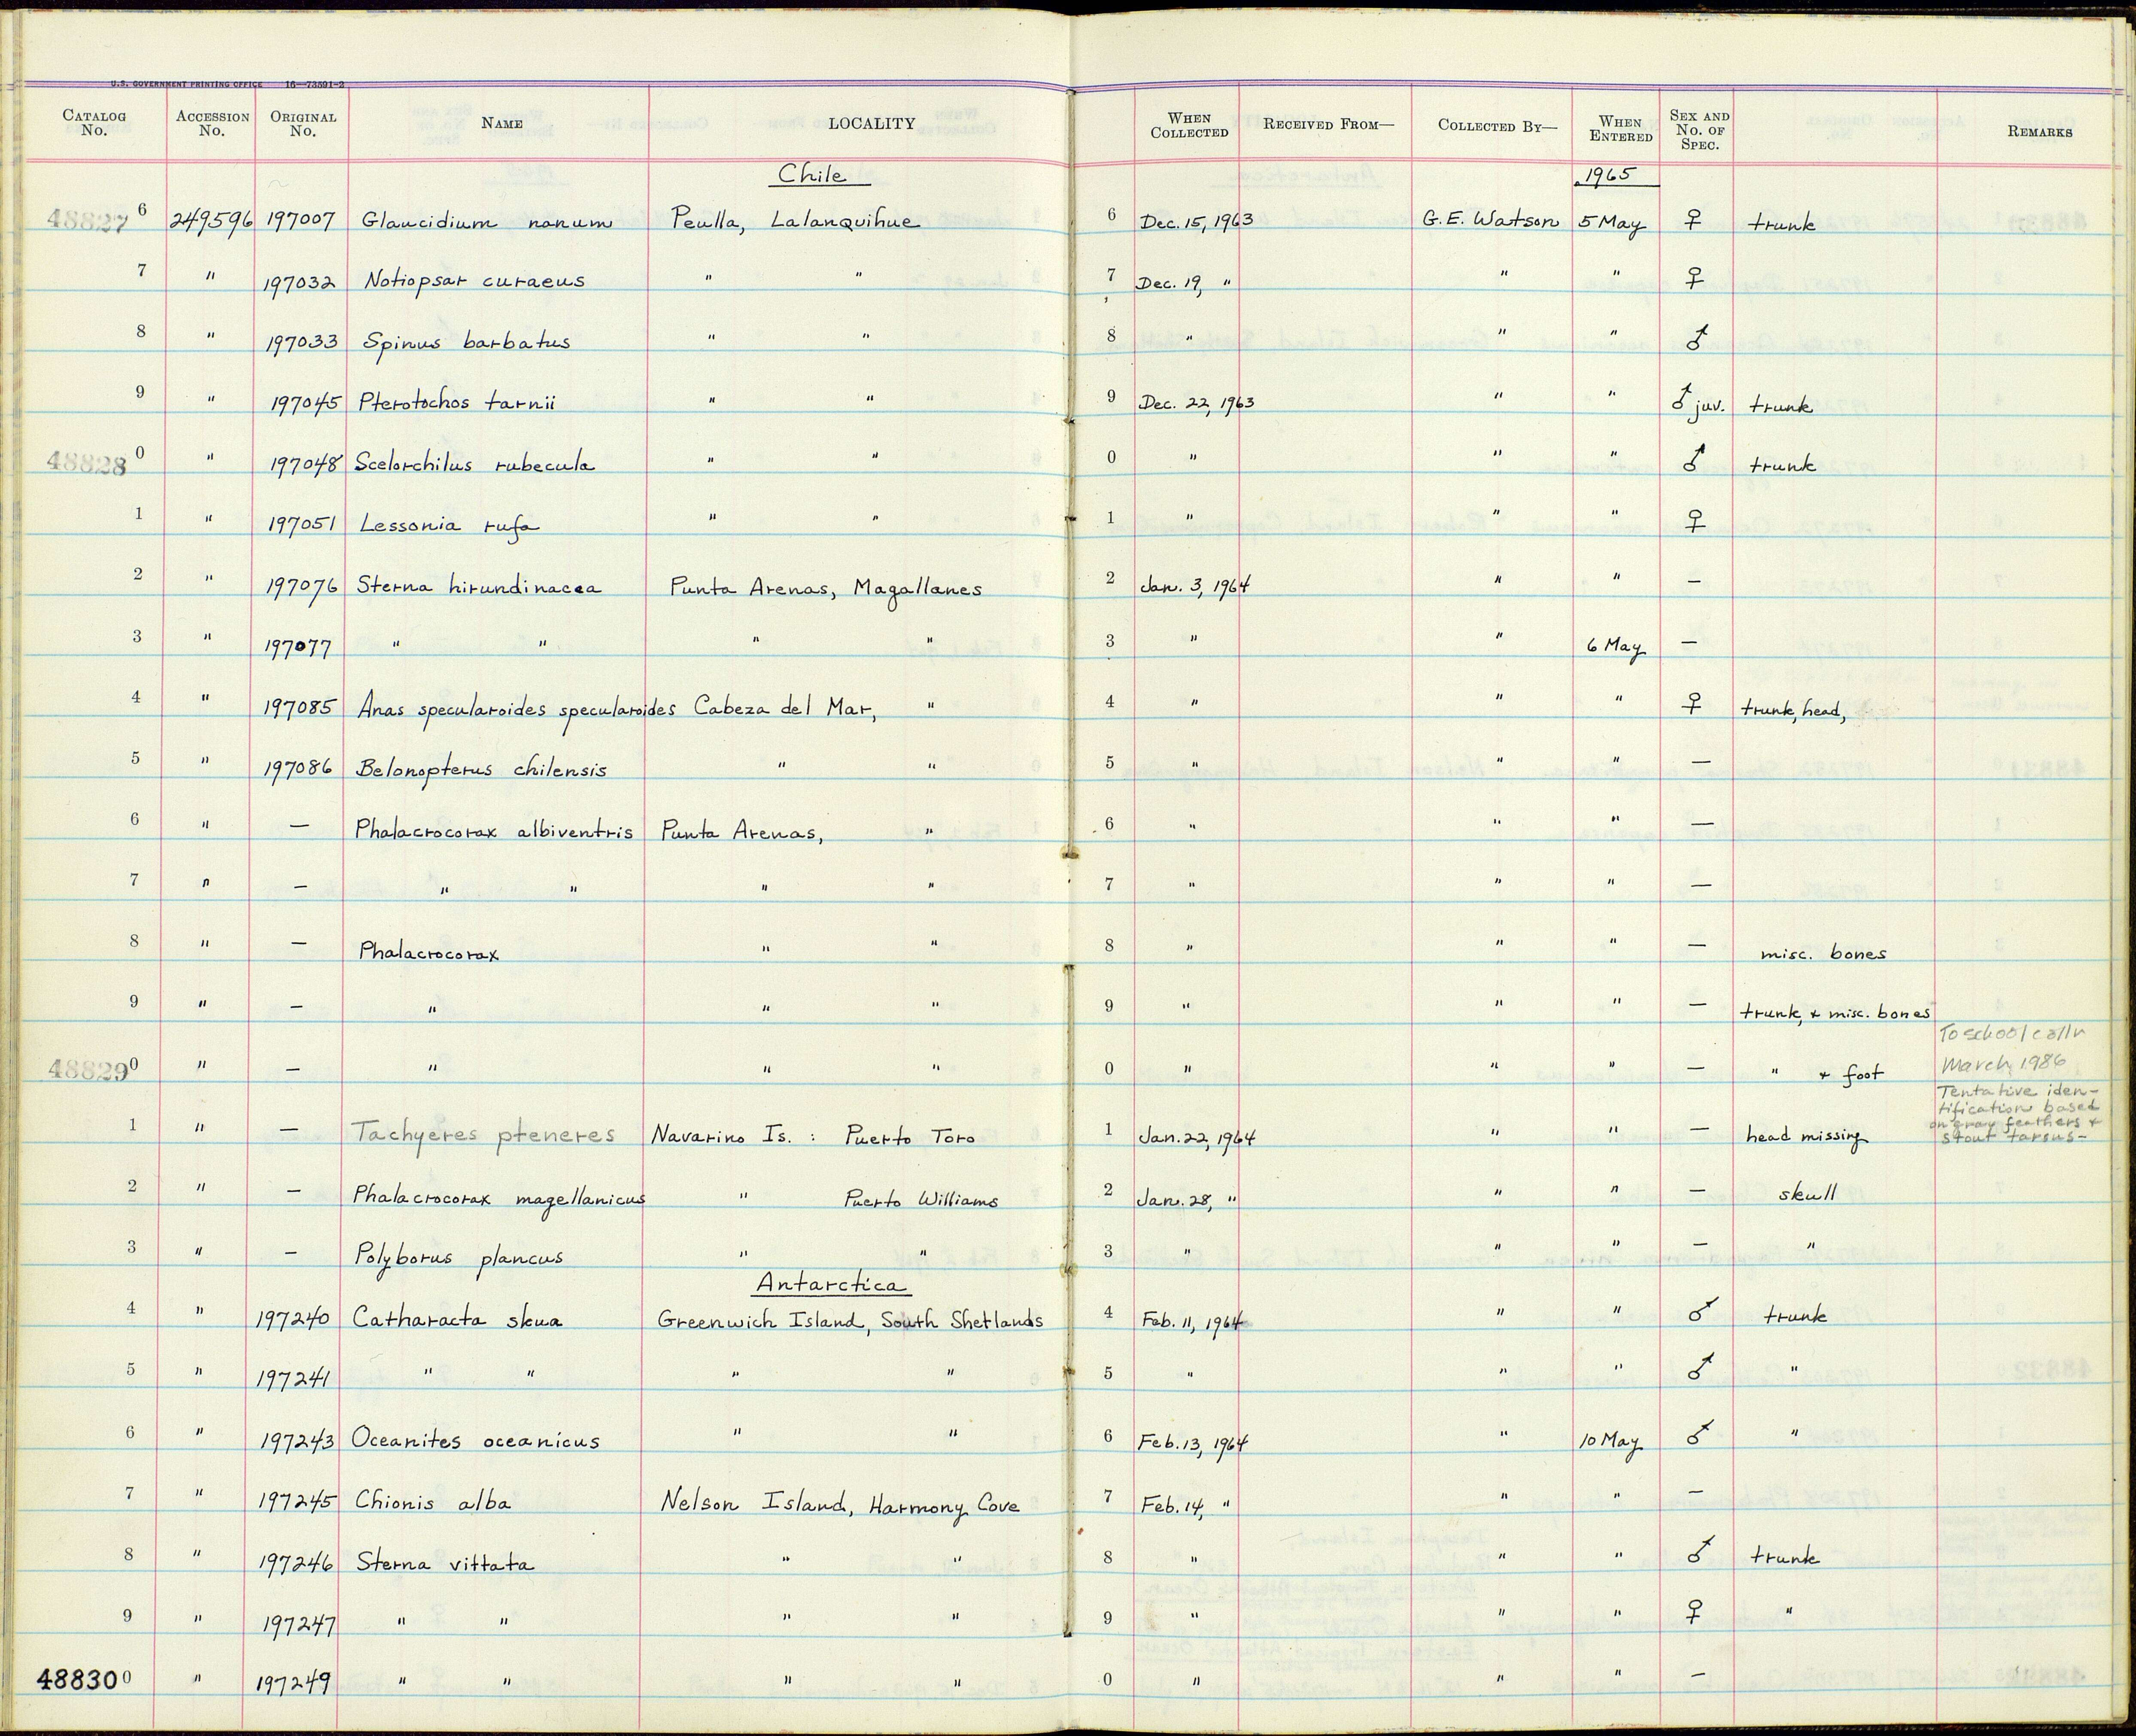 U.S. GOVERNMENT PRINTING OFFICE 16—73591-2
CATALOG No. ACCESSION No. ORIGINAL No. NAME LOCALITY WHEN COLLECTED RECEIVED FROM— COLLECTED BY— WHEN ENTERED SEX AND No. OF SPEC. REMARKS
Chile 1965
48827 6 249596 197007 Glaucidium nanum Peulla, Lalanquihue 6 Dec. 15, 1963 G.E. Watson 5 May ♀ trunk
7 " 197032 Notiopsar curaeus " " 7 Dec. 19, " " " ♀
8 " 197033 Spinus barbatus " " 8 " " " ♂
9 " 197045 Pterotochos tarnii " " 9 Dec. 22, 1963 " " ♂ juv. trunk
48828 0 " 197048 Scelorchilus rubecula " " 0 " " " ♂ trunk
1 " 197051 Lessonia rufa " " 1 " " " ♀
2 " 197076 Sterna hirundinacea Punta Arenas, Magallanes 2 Jan. 3, 1964 " " —
3 " 197077 " " " " 3 " " 6 May —
4 " 197085 Anas specularoides specularoides Cabeza del Mar, " 4 " " " ♀ trunk, head,
5 " 197086 Belonopterus chilensis " " 5 " " " —
6 " — Phalacrocorax albiventris Punta Arenas, " 6 " " " —
7 " — " " " " 7 " " " —
8 " — Phalacrocorax " " 8 " " " — misc. bones
9 " — " " " 9 " " " — trunk, & misc. bones
48829 0 " — " " " 0 " " " — " & foot To school March, 1986
1 " — Tachyeres pteneres Navarino Is. : Puerto Toro 1 Jan. 22, 1964 " " — head missing Tentative iden-
tification based
on gray feathers &
stout tarsus—
2 " — Phalacrocorax magellanicus " Puerto Williams 2 Jan. 28, " " " — skull
3 " — Polyborus plancus " " 3 " " " — "
Antarctica
4 " 197240 Catharacta skua Greenwich Island, South Shetlands 4 Feb. 11, 1964 " " ♂ trunk
5 " 197241 " " " " 5 " " " ♂ "
6 " 197243 Oceanites oceanicus " " 6 Feb. 13, 1964 " 10 May ♂ "
7 " 197245 Chionis alba Nelson Island, Harmony Cove 7 Feb. 14, " " " —
8 " 197246 Sterna vittata " " 8 " " " ♂ trunk
9 " 197247 " " " " 9 " " " ♀ "
48830 0 " 197249 " " " " 0 " " " —